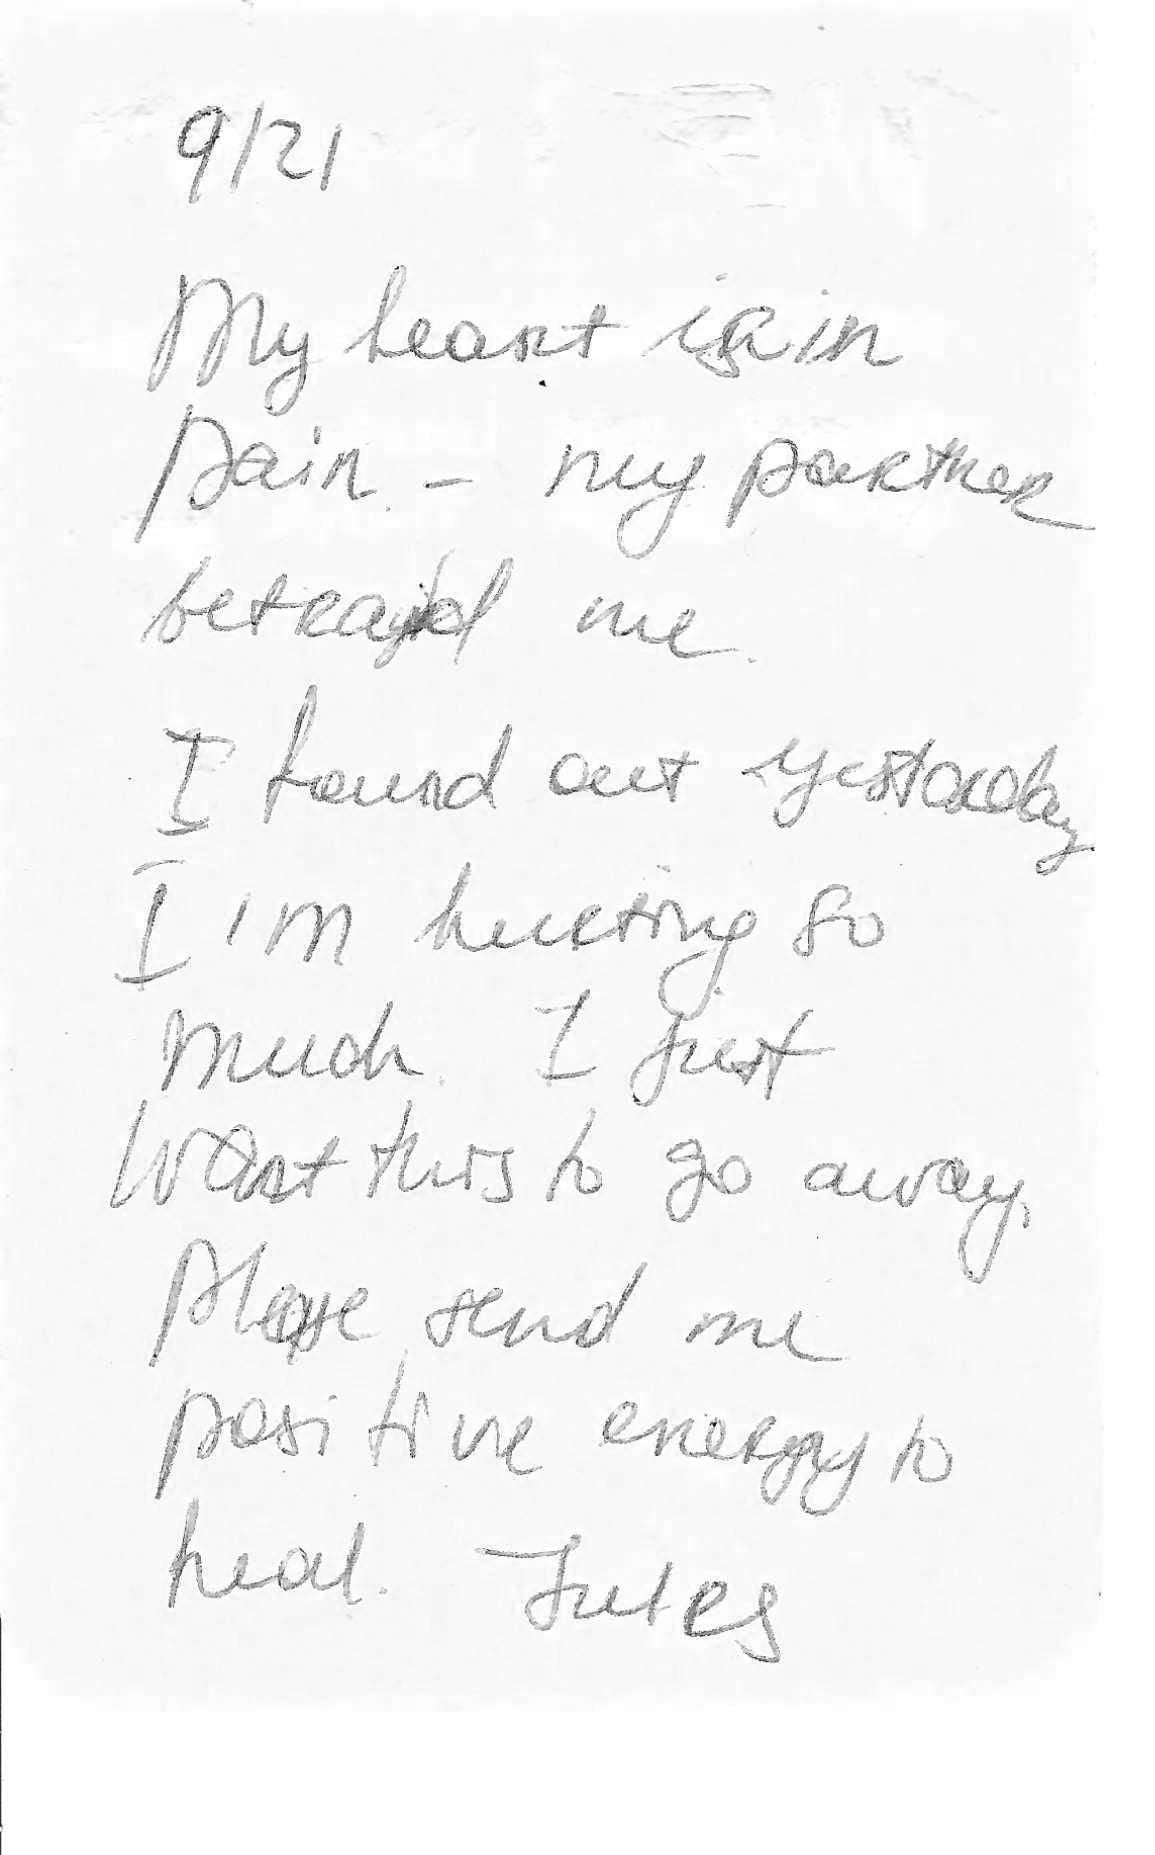 9/21
My heart is in
pain - my partner
betrayed me.
I found out yesterday
I'm hurting so
much. I just
want this to go away.
Please send me
positive energy to
heal. Jules